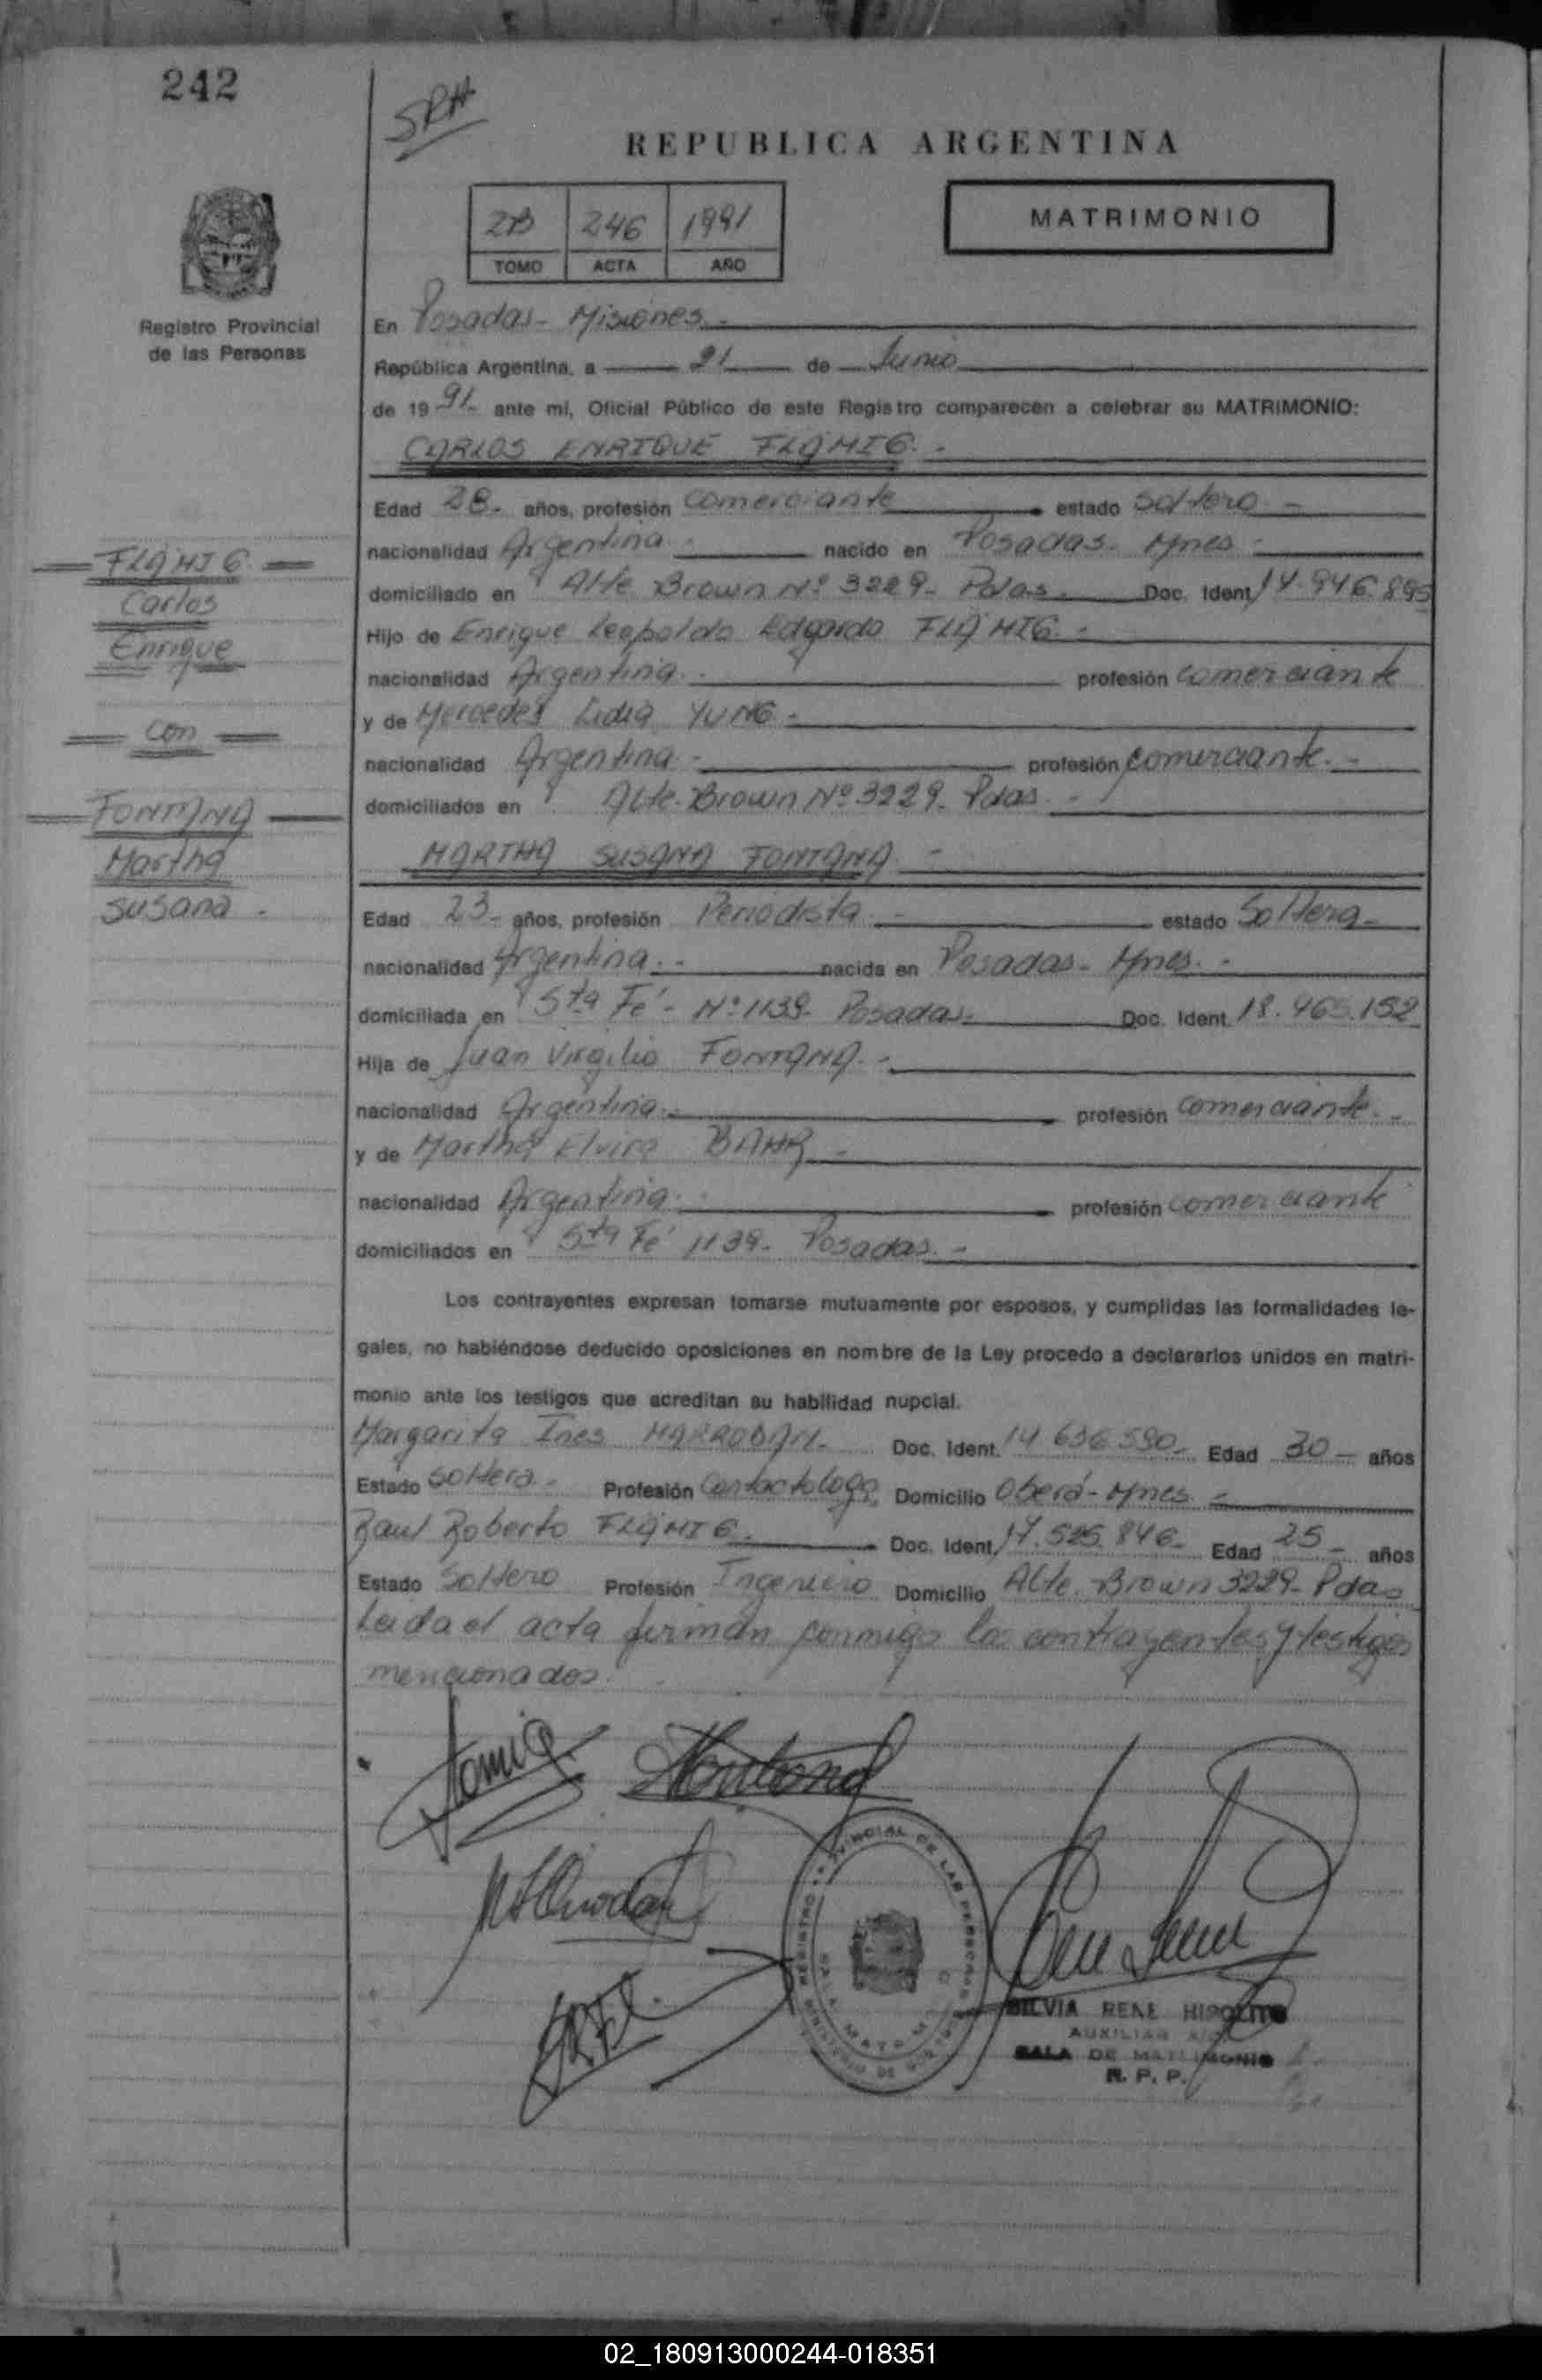 242
SRH
REPUBLICA ARGENTINA
2B 246 1991
TOMO ACTA AÑO
MATRIMONIO
Registro Provincial
de las Personas
En Posadas - Misiones -
República Argentina, a 21 de Junio
de 19 91- ante mi, Oficial Público de este Registro comparecen a celebrar su MATRIMONIO:
CARLOS ENRIQUE FLAMIG. -
Edad 28- años, profesión comerciante estado soltero. -
nacionalidad Argentina. - nacido en Posadas - Mnes -
domiciliado en Alte Brown Nº 3229- Pdas. Doc. Ident. 14.946.895
Hijo de Enrique Leopoldo Edgardo FLAMIG -
nacionalidad Argentina. - profesión comerciante
y de Mercedes Lidia YUNG -
nacionalidad Argentina. - profesión comerciante. -
domiciliados en Alte. Brown Nº 3229. Pdas. -
MARTHA SUSANA FONTANA. -
Edad 23- años, profesión Periodista. - estado Soltera-
nacionalidad Argentina. - nacida en Posadas - Mnes. -
domiciliada en Sta Fé - Nº 1139- Posadas- Doc. Ident. 18.465.152
Hija de Juan Virgilio FONTANA. -
nacionalidad Argentina. - profesión comerciante. -
y de Martha Elvira BAHR -
nacionalidad Argentina. - profesión comerciante
domiciliados en Sta Fé 1139- Posadas. -
Los contrayentes expresan tomarse mutuamente por esposos, y cumplidas las formalidades le-
gales, no habiéndose deducido oposiciones en nombre de la Ley procedo a declararlos unidos en matri-
monio ante los testigos que acreditan su habilidad nupcial.
Margarita Ines MARRODAN. Doc. Ident. 14.636.590- Edad 30- años
Estado soltera - Profesión Contactologa Domicilio Oberá - Mnes -
Raul Roberto FLAMIG. Doc. Ident. 17.525.846- Edad 25- años
Estado soltero Profesión Ingeniero Domicilio Alte. Brown 3229- Pdas
Leida el acta firman conmigo los contrayentes y testigos
mencionados.
FLAMIG
Carlos
Enrique
con
FONTANA
Martha
Susana -
REGISTRO PROVINCIAL DE LAS PERSONAS
SILVIA RENE HIPOLITO
AUXILIAR
SALA DE MATRIMONIO
R. P. P.
02_180913000244-018351